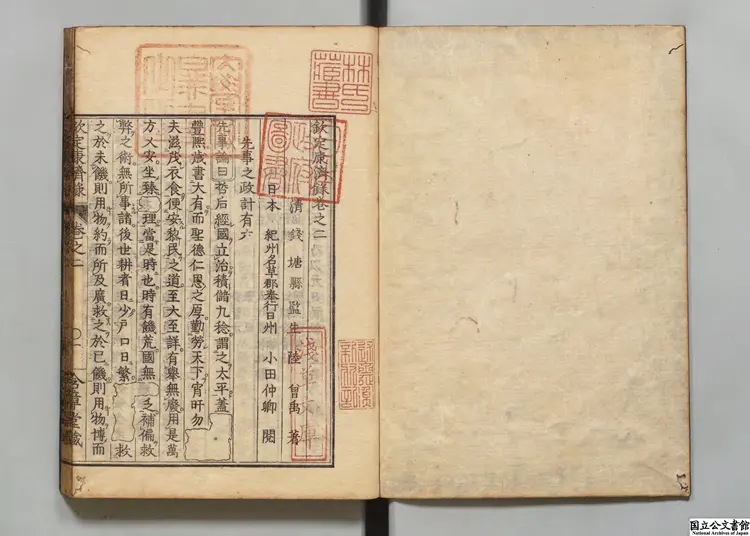 欽定康濟錄卷之二
清 錢塘縣監生 陸曾禹 著
日本 紀州名草郡奉行日州 小田仲卿 閱
先事之政計有六
先事論曰哲后經國立治積儲九稔謂之太平蓋
豐熙歲書大有而聖德仁恩之厚勤勞天下宵旰勿
夫滋茂衣食便安黎民之道至大至詳有舉無廢用是萬
方人安坐臻 理當是時也時有饑荒國無 乏補偏救
弊之術無所事諸後世耕者日少戶口日繁 救
之於未饑則用物約而所及廣救之於已饑則用物博而
欽定康濟錄 卷之二 〇一
林氏藏書
淺草文庫
国立公文書館
National Archives of Japan